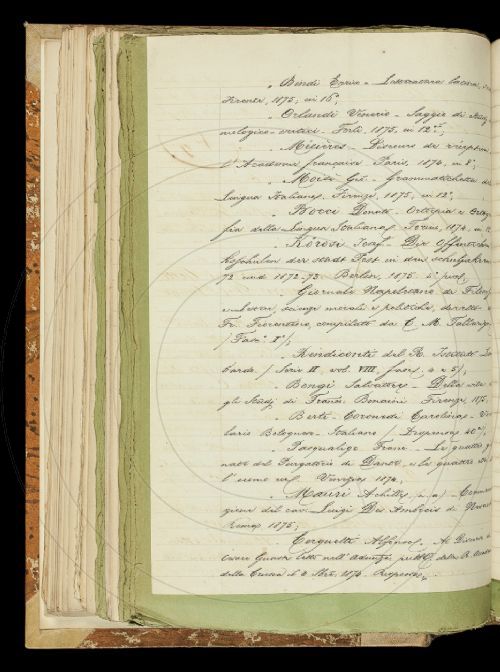 " Bindi Enrico – Letteratura latina,
Firenze, 1875; in 16°;
" Orlandi Venerio – Saggio di
critici – Forlì, 1875, in 12°;
" Mézières – Discours de réception
l'Académie française Paris, 1874, in 8°;
" Moise Gio – Grammatichetta della
lingua Italiana. Firenze, 1875; in 12°;
" Bocci Donato – Ortoepia e
fia della lingua Italiana. Torino, 1874, in
" Körösi Josef – Die Öffentlichen
der stadt Pest in den schuljahren
72 und 1872-73. Berlin, 1875
Giornale Napoletano di
e lettere, scienze morali e politiche, diretto
Fr. Fiorentino, compilato da C. M. Tallarigo
/ Fasc. I° /;
" Rendiconti del R. Istituto
bardo / Serie II, vol. VIII, fasc. 4 e 5 /;
" Bongi Salvatore – Della vita
gli Studj di Franc. Bonaini Firenze, 1875
" Berti – Coronedi Carolina –
lario Bolognese – Italiano / Dispensa 40ª /;
" Pasqualigo Franc – Le quattro
nate del Purgatorio di Dante, e le quattro
l'uomo Venezia 1874,
" Mauri Achille,
del cav. Luigi Des Ambrois de
Roma 1875;
" Cerquetti Alfonso – Al Discorso
Cesare Guasti letto nell'adunza pubb. della R.
della Crusca il 6 1874 – Risposta,